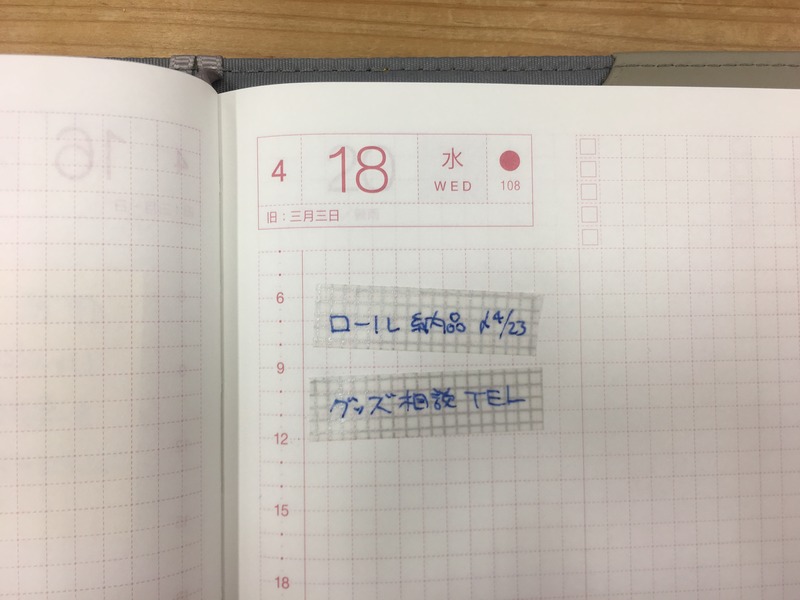 4 18 水 WED 108
旧:三月三日
6
ロール 納品 〆4/23
9
グッズ相談 TEL
12
15
18